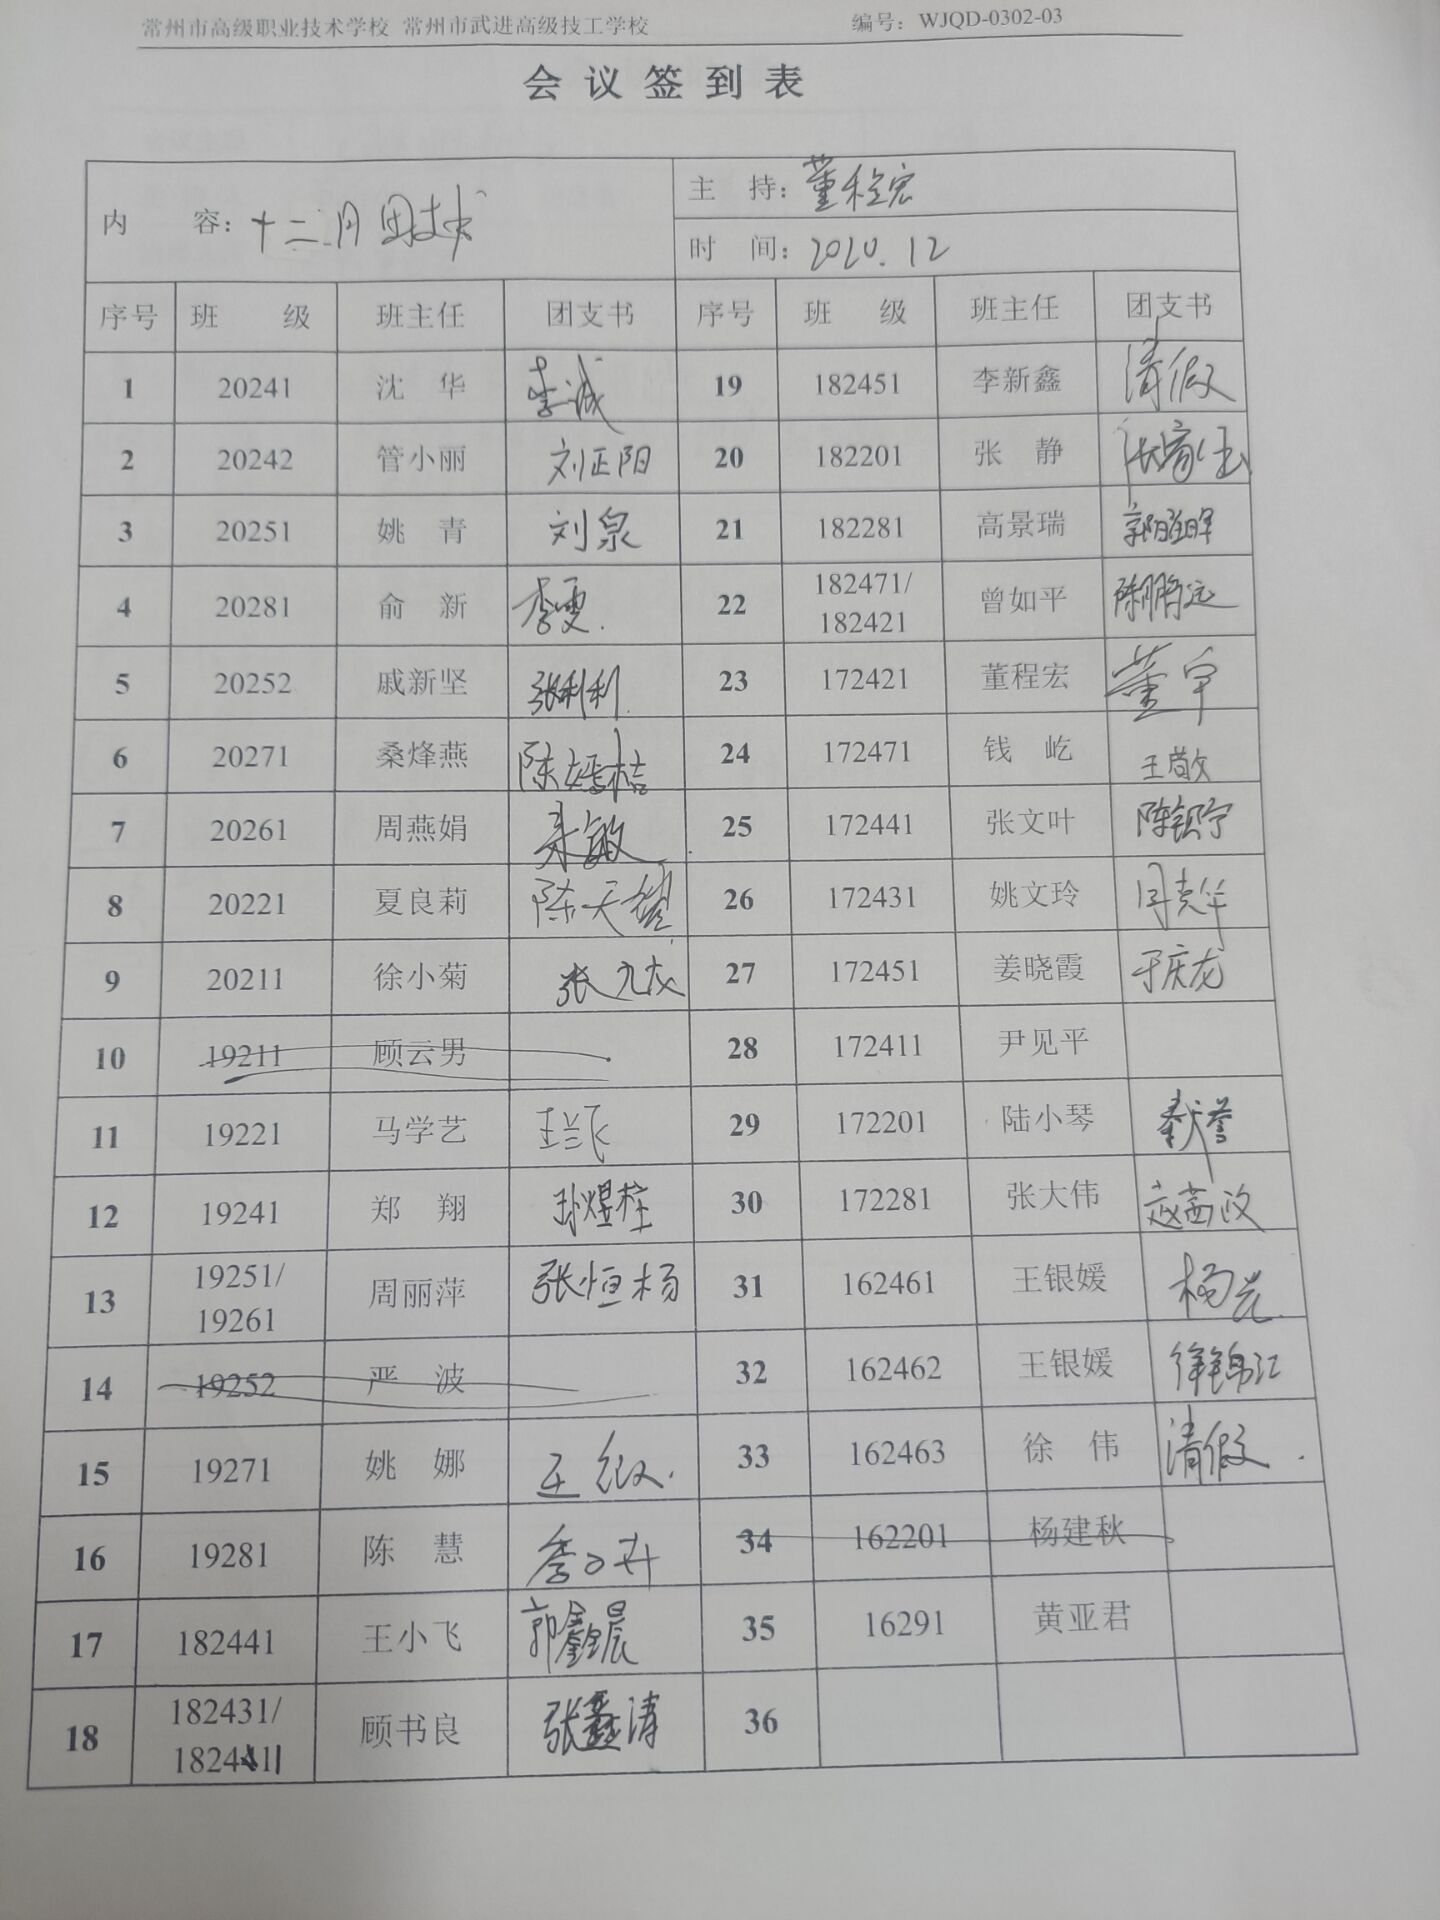 常州市高级职业技术学校 常州市武进高级技工学校 编号：WJQD-0302-03
会议签到表
内 容：十二月团支书
主 持：董程宏
时 间：2020.12
序号 班 级 班主任 团支书 序号 班 级 班主任 团支书
1 20241 沈 华 李诚 19 182451 李新鑫 请假
2 20242 管小丽 刘正阳 20 182201 张 静
3 20251 姚 青 刘泉 21 182281 高景瑞
4 20281 俞 新 李雯. 22 182471/182421 曾如平 陈鹏远
5 20252 戚新坚 张利利. 23 172421 董程宏 董宇
6 20271 桑烽燕 陈嫣桔 24 172471 钱 屹 王敬文
7 20261 周燕娟 朱敏 25 172441 张文叶 陈银宁
8 20221 夏良莉 陈天 26 172431 姚文玲 闫克华
9 20211 徐小菊 张九龙 27 172451 姜晓霞 于庆龙
10 19211 顾云男 28 172411 尹见平
11 19221 马学艺 王兰飞 29 172201 陆小琴
12 19241 郑 翔 孙煜柱 30 172281 张大伟
13 19251/19261 周丽萍 张恒杨 31 162461 王银媛
14 19252 严 波 32 162462 王银媛 徐锦江
15 19271 姚 娜 33 162463 徐 伟 请假.
16 19281 陈 慧 34 162201 杨建秋
17 182441 王小飞 郭鑫晨 35 16291 黄亚君
18 182431/182411 顾书良 张鑫涛 36